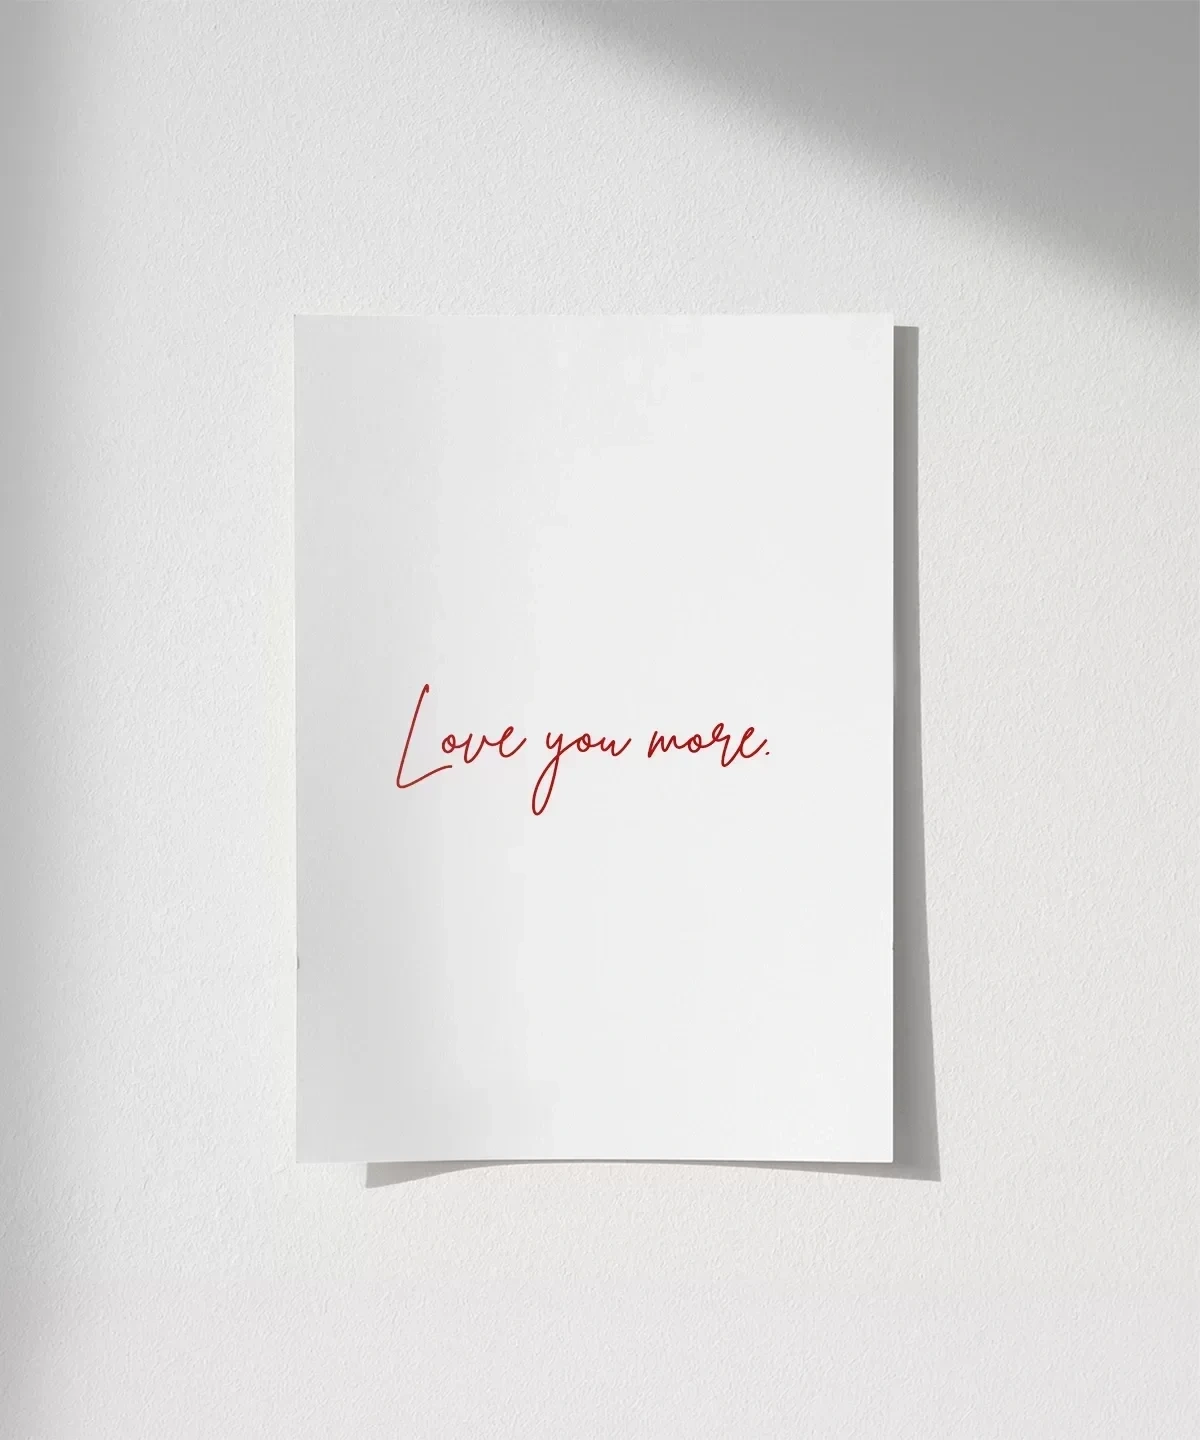 Love you more.